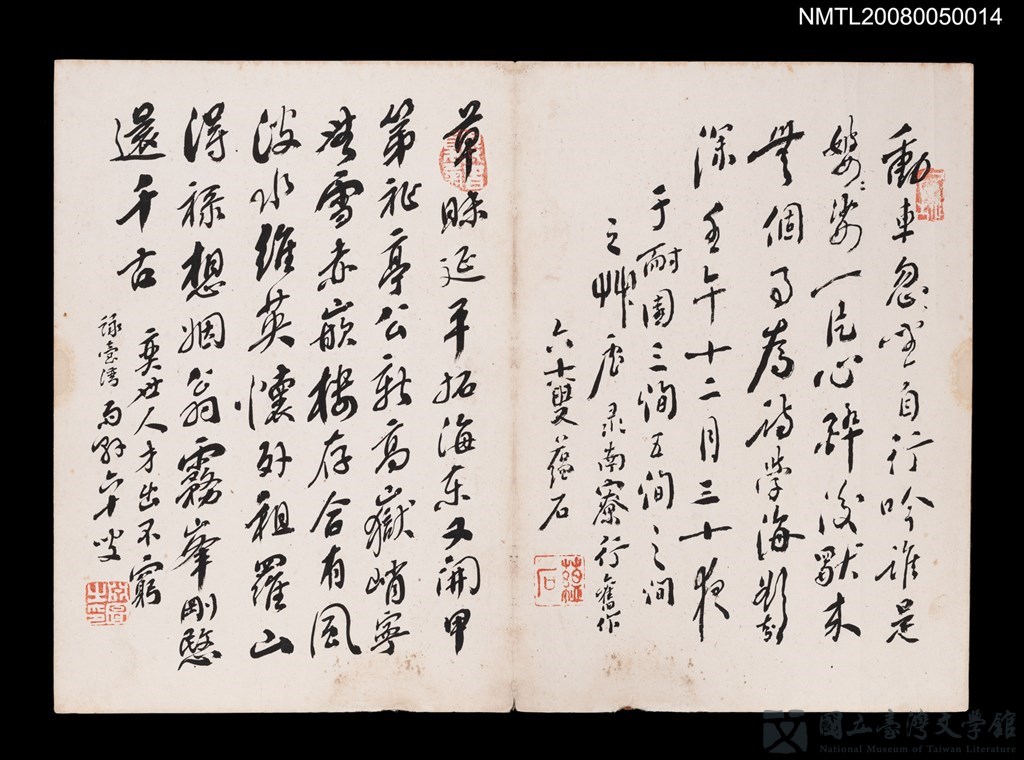 NMTL20080050014
動車忽忽坐自行吟誰是
婆娑一片心醉後獸未
無個事為詩學海
深 壬午十二月三十夜
于耐園三澗五澗之澗
之艸 录南寮行舊作
六十雙蘊石
蘊石
草昧延平拓海東又開甲
第祉亭公新高嶽峭寒
雪赤嵌樓存合有風
波水維英懷外祖羅山
得祿想姻翁霧峯剛愍
還千古 奕世人才出不窮
詠臺灣 六十叟
國立臺灣文學館
National Museum of Taiwan Literature